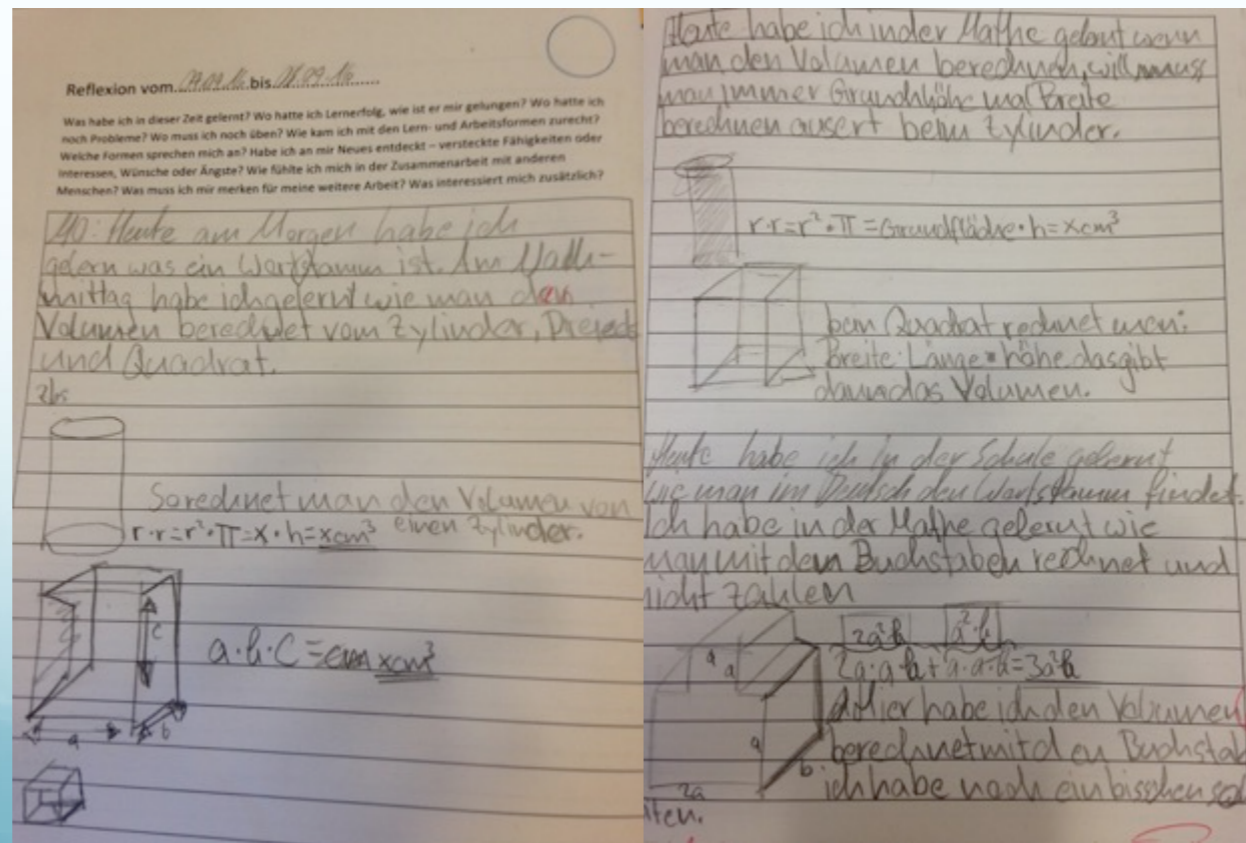 Reflexion vom 07.09.16 bis 08.09.16
Was habe ich in dieser Zeit gelernt? Wo hatte ich Lernerfolg, wie ist er mir gelungen? Wo hatte ich
noch Probleme? Wo muss ich noch üben? Wie kam ich mit den Lern- und Arbeitsformen zurecht?
Welche Formen sprechen mich an? Habe ich an mir Neues entdeckt – versteckte Fähigkeiten oder
Interessen, Wünsche oder Ängste? Wie fühlte ich mich in der Zusammenarbeit mit anderen
Menschen? Was muss ich mir merken für meine weitere Arbeit? Was interessiert mich zusätzlich?
Heute am Morgen habe ich
gelern was ein Wortstamm ist. Am Nach-
mittag habe ich gelernt wie man den
Volumen berechnet vom Zylinder, Dreieck
und Quadrat.
So rechnet man den Volumen von
einen Zylinder.
r·r=r²·π=x·h=xcm³
c
a·b·c= xcm³
a
b
Heute habe ich in der Mathe gelernt wenn
man den Volumen berechnen will muss
man immer Grundhöhe mal Breite
berechnen ausert beim Zylinder.
r·r=r²·π=Grundfläche·h=xcm³
bem Quadrat rechnet man:
Breite·Länge·höhe das gibt
dann das Volumen.
Heute habe ich in der Schule gelernt
wie man im Deutsch den Wortstamm findet.
Ich habe in der Mathe gelernt wie
man mit dem Buchstaben rechnet und
nicht zahlen
2a²b a²·b
2a·a·b+a·a·b=3a²b
a
a
Hier habe ich den Volumen
berechnet mit den Buchstab
a
b
ich habe noch ein bisschen
2a
iten.